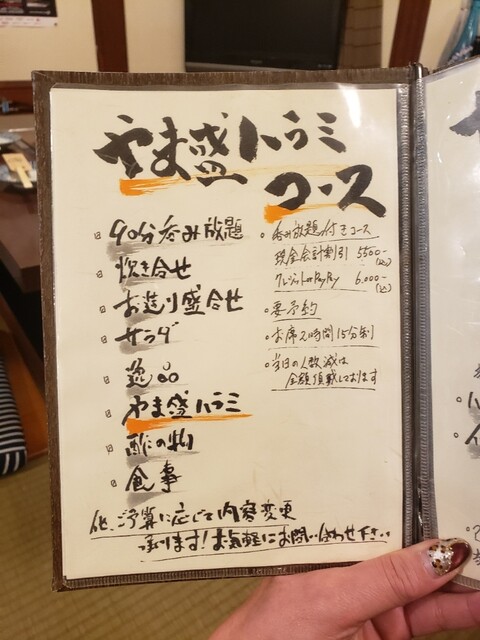 やま盛ハラミ
コース
90分呑み放題
炊き合せ
お造り盛合せ
サラダ
逸品
やま盛ハラミ
酢の物
食事
呑み放題付きコース
現金会計割引 5500-
(込)
クレジットorPayPay 6.000-
(込)
要予約
お席2時間15分制
当日の人数減は
全額頂戴しております
他、ご予算に応じて内容変更
承ります!お気軽にお問い合わせ下さい